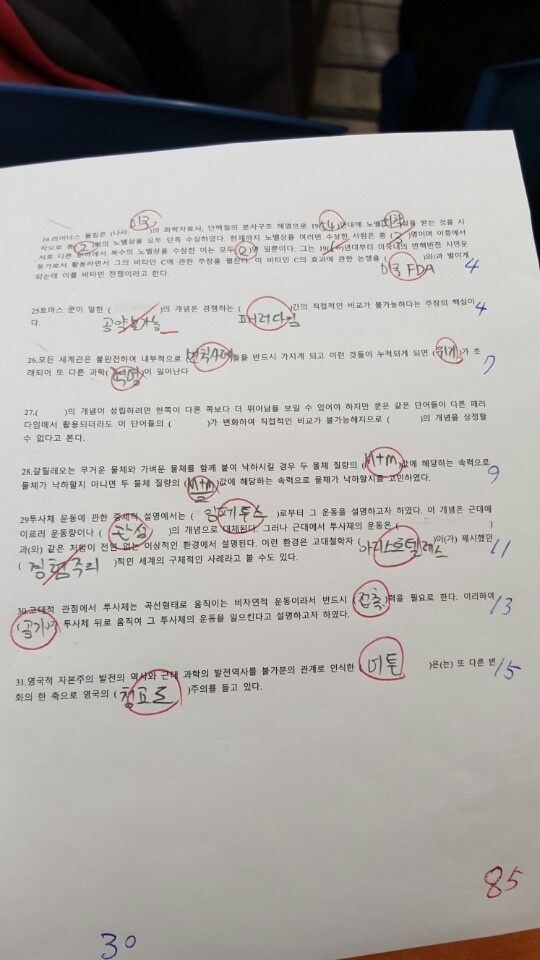 미국
24.라이너스 폴링은 (나라: )의 과학자로서, 단백질의 분자구조 해명으로 19(54)년대에 노벨(화학)상을 받는 것을 시
작으로 총(2)회의 노벨상을 모두 단독 수상하였다. 현재까지 노벨상을 여러번 수상한 사람은 총 ( )명이며 이중에서
서로 다른 분야에서 복수의 노벨상을 수상한 이는 모두(2)명 일뿐이다. 그는 19( )년대부터 미국내의 반핵반전 시민운
동가로서 활동하면서 그의 비타민 C에 관한 주장을 펼친다. 이 비타민 C의 효과에 관한 논쟁을 ( )와/과 벌이게
되는데 이를 비타민 전쟁이라고 한다. 미국 FDA 4
25토마스 쿤이 말한 ( )의 개념은 경쟁하는 ( )간의 직접적인 비교가 불가능하다는 주장의 핵심이
다. 공약불가능 패러다임 4
26.모든 세계관은 불완전하여 내부적으로 (변칙사례)들을 반드시 가지게 되고 이런 것들이 누적되게 되면 (위기)가 초
래되어 또 다른 과학(혁명)이 일어난다 7
27.( )의 개념이 성립하려면 한쪽이 다른 쪽보다 더 뛰어남을 보일 수 있어야 하지만 쿤은 같은 단어들이 다른 패러
다임에서 활용되더라도 이 단어들의 ( )가 변화하여 직접적인 비교가 불가능해지므로 ( )의 개념을 상정할
수 없다고 본다.
28.갈릴레오는 무거운 물체와 가벼운 물체를 함께 붙여 낙하시킬 경우 두 물체 질량의 (M+m)값에 해당하는 속력으로
물체가 낙하할지 아니면 두 물체 질량의 (M+m/2)값에 해당하는 속력으로 물체가 낙하할지를 고민하였다. 9
29투사체 운동에 관한 중세적 설명에서는 ( 임페투스 )로부터 그 운동을 설명하고자 하였다. 이 개념은 근대에
이르러 운동량이나 (관성)의 개념으로 대체된다. 그러나 근대에서 투사체의 운동은 ( )
과(와) 같은 저항이 전혀 없는 이상적인 환경에서 설명된다. 이런 환경은 고대철학자 (아리스토텔레스)이(가) 제시했던
( 경험주의 )적인 세계의 구체적인 사례라고 볼 수도 있다. 11
30.고대적 관점에서 투사체는 곡선형태로 움직이는 비자연적 운동이라서 반드시 (접촉)력을 필요로 한다. 이리하여
(공기)가 투사체 뒤로 움직여 그 투사체의 운동을 일으킨다고 설명하고자 하였다. 13
31.영국적 자본주의 발전의 역사와 근대 과학의 발전역사를 불가분의 관계로 인식한 ( 머튼 )은(는) 또 다른 변
화의 한 축으로 영국의 ( 청교도 )주의를 들고 있다. 15
85
30